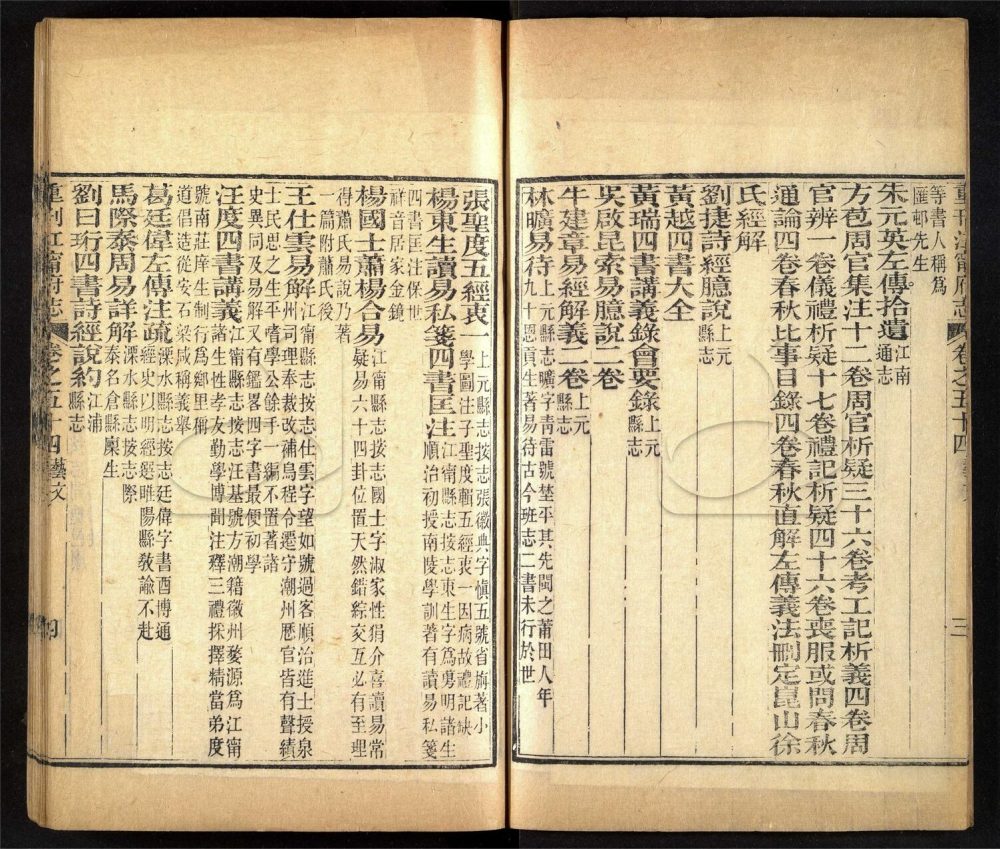 重刊江甯府志 卷之五十四 藝文 三
等書人稱爲
匯邨先生
朱元英左傳拾遺 江南通志
方苞周官集注十二卷周官析疑三十六卷考工記析義四卷周
官辨一卷儀禮析疑十七卷禮記析疑四十六卷喪服或問春秋
通論四卷春秋比事目錄四卷春秋直解左傳義法刪定崑山徐
氏經解
劉捷詩經臆說 上元縣志
黃越四書大全
黃瑞四書講義錄會要錄 上元縣志
吳啟昆索易臆說二卷
牛建章易經解義二卷 上元縣志
林曠易待 上元縣志曠字青雷號埜平其先閩之莆田人年
九十恩貢生著易待古今班志二書未行於世
張聖度五經衷一 上元縣志按志張徽典字愼五號省旃著小
學圖注子聖度輯五經衷一因病故禮記缺
楊東生讀易私箋四書匡注 江甯縣志按志東生字爲男明諸生
順治初授南陵學訓著有讀易私箋
四書匡注保世
祥音居家金鏡
楊國士蕭楊合易 江甯縣志按志國士字淑家性狷介喜讀易常
疑易六十四卦位置天然錯綜交互必有至理
得蕭氏易說乃著
一篇附蕭氏後
王仕雲易解 江甯縣志按志仕雲字望如號過客順治進士授泉
州司理奉裁改補烏程令遷守潮州厯官皆有聲績
士民思之生平嗜學公餘手一編不置著諸
史異同及易解又有鑑畧四字書最便初學
汪度四書講義 江甯縣志按志汪基號方潮籍徽州婺源爲江甯
諸生性孝友勤學博聞注釋三禮採擇精當弟度
號南莊庠生制行爲鄉里稱
道倡造從安石梁咸稱義舉
葛廷偉左傳注疏 溧水縣志按志廷偉字書酉博通
經史以明經選睢陽縣敎諭不赴
馬際泰周易詳解 溧水縣志按志際
泰名倉縣廩生
劉曰珩四書詩經說約 江浦縣志
重刊江甯府志 卷之五十四 藝文 四